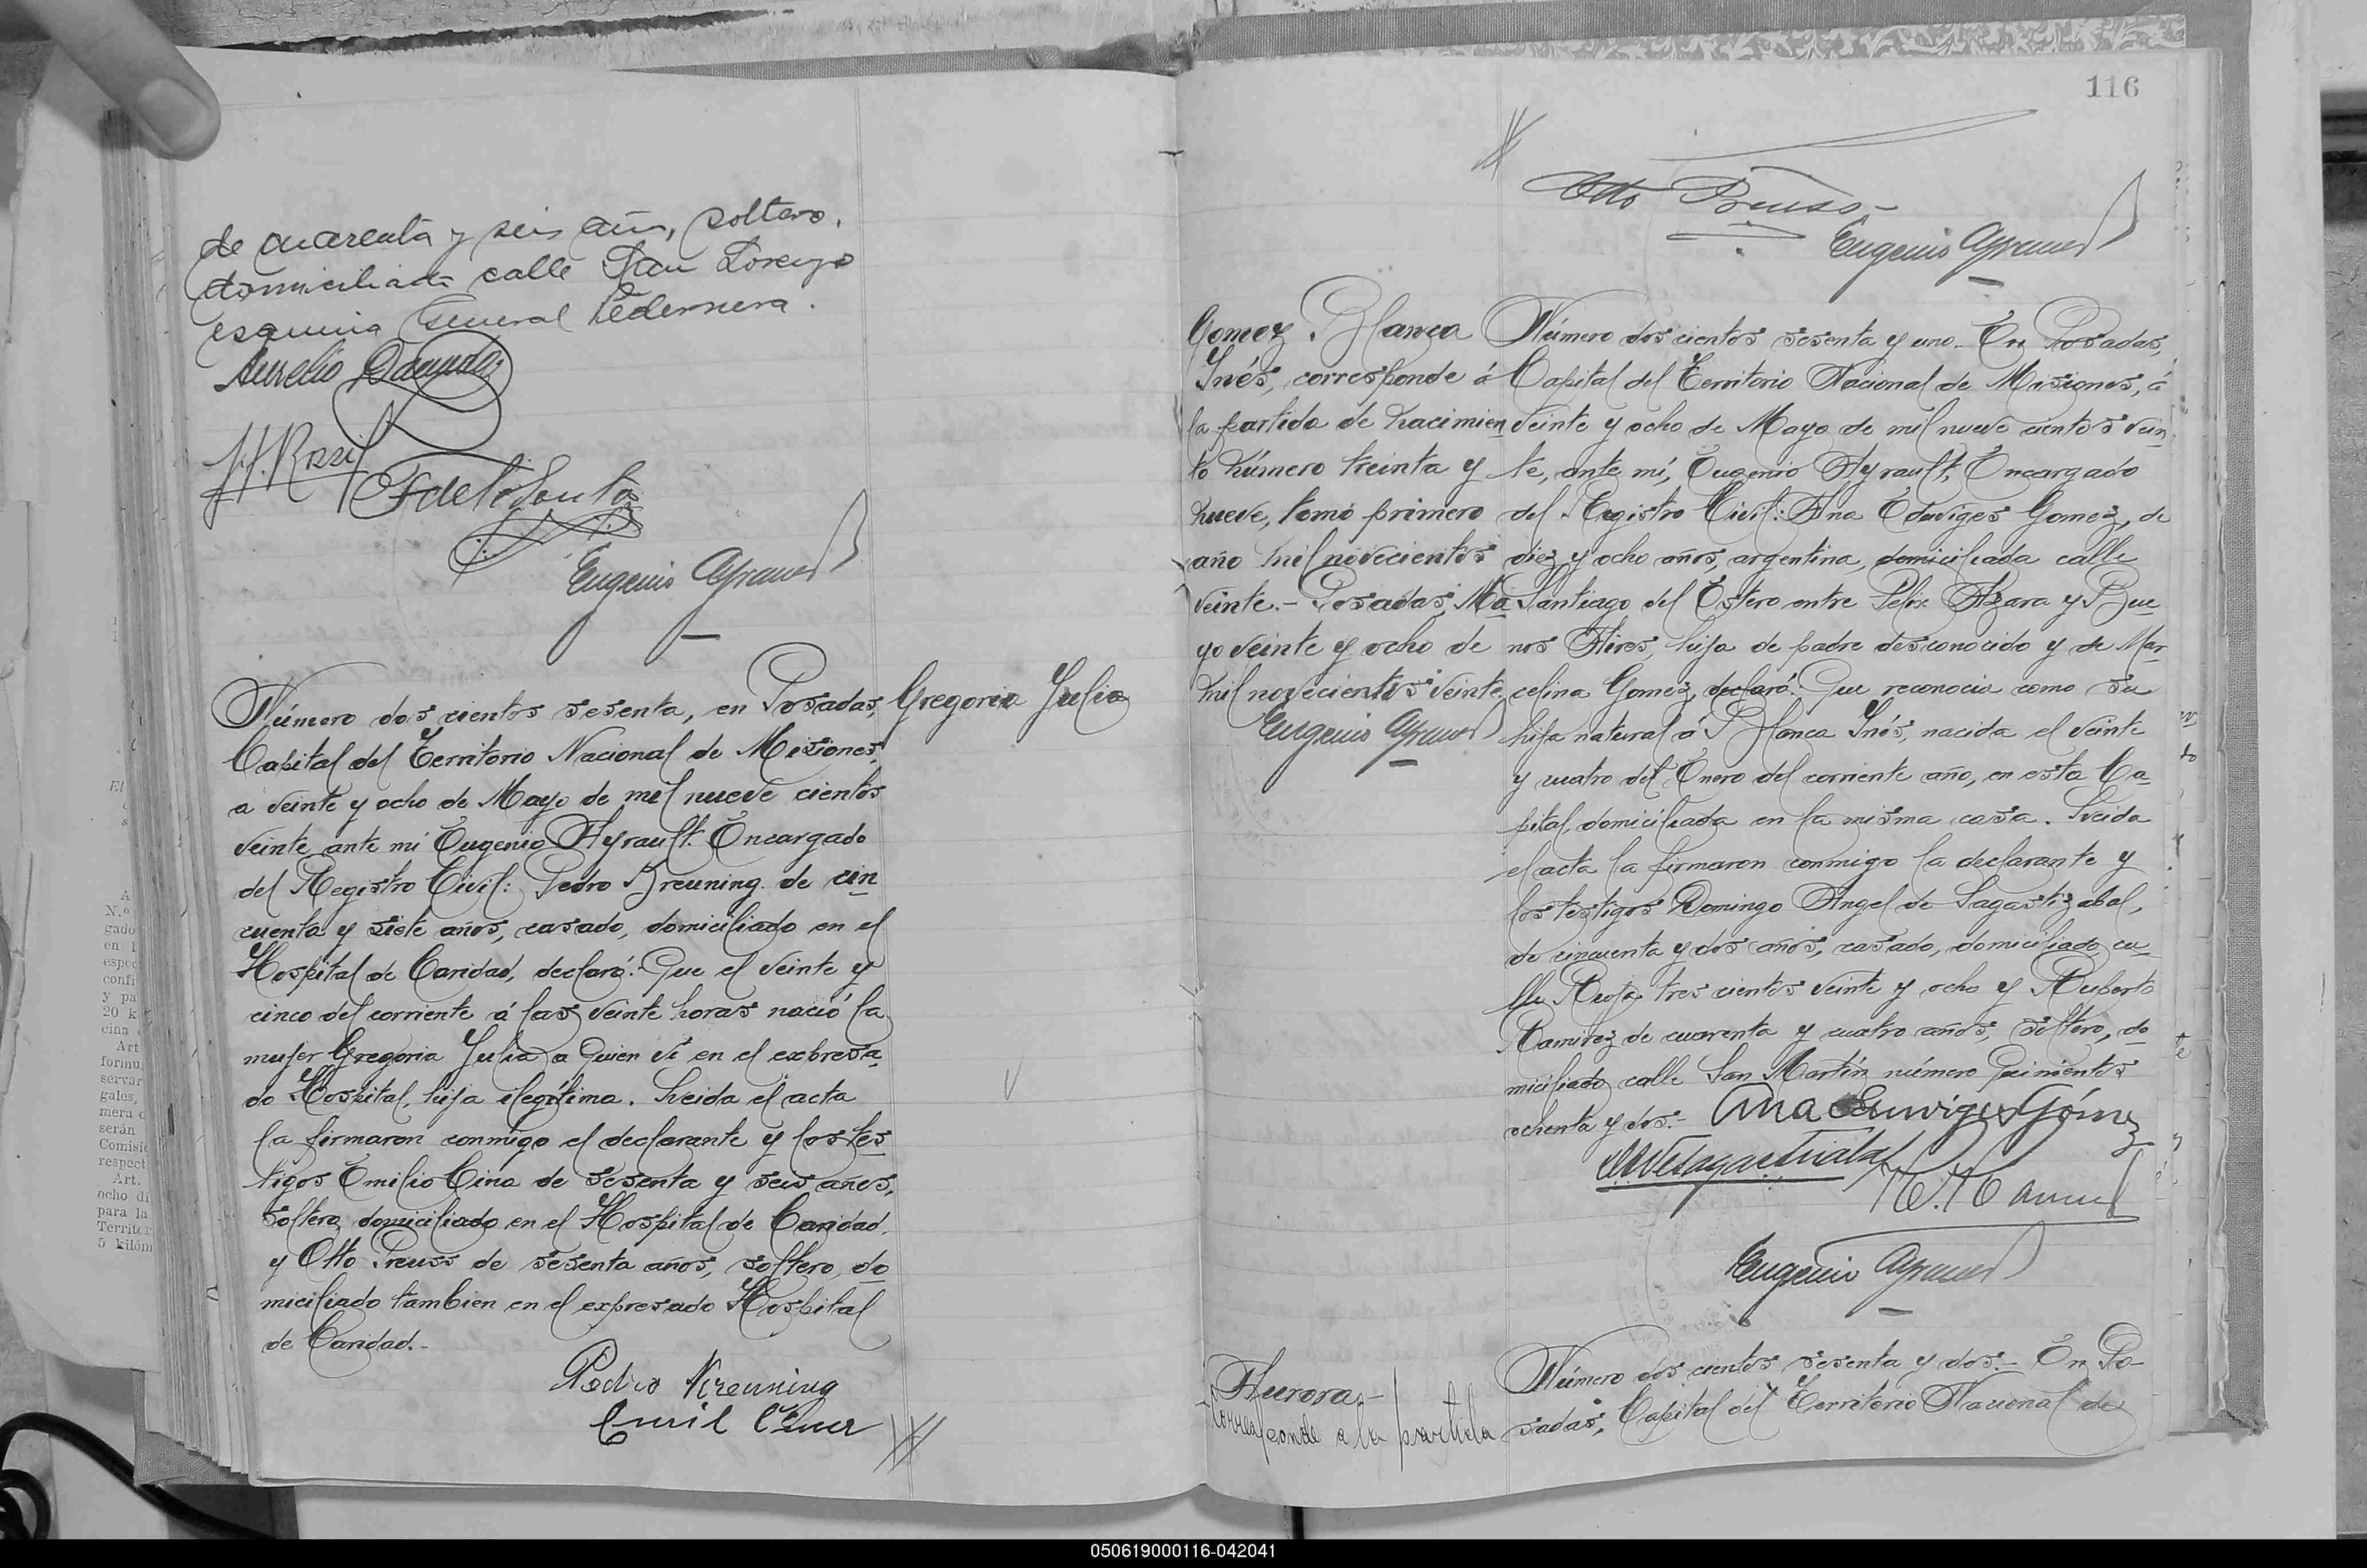 de cuarenta y seis años, soltero,
domiciliado calle San Lorenzo
esquina General Pedernera.
Aurelio
Eugenio Ayrault
Número dos cientos sesenta, en Posadas,
Capital del Territorio Nacional de Misiones,
a veinte y ocho de Mayo de mil nueve cientos
veinte ante mi Eugenio Ayrault. Encargado
del Registro Civil: Pedro Breuning de cin
cuenta y siete años, casado, domiciliado en el
Hospital de Caridad, declaró: Que el veinte y
cinco del corriente á las veinte horas nació la
mujer Gregoria Julia a quien vi en el expresa
do Hospital, hija ilegítima. Leida el acta
la firmaron conmigo el declarante y los tes
tigos Emilio Cina de sesenta y seis años,
soltero, domiciliado en el Hospital de Caridad,
y Otto Preuss de sesenta años, soltero, do
miciliado tambien en el expresado Hospital
de Caridad.-
Gregoria Julia
Pedro Kreuning
Emil
116
Otto Preuss
Eugenio Ayrault
Gomez Blanca
Inés, corresponde á
la partida de nacimien
to número treinta y
nueve, tomo primero
año mil novecientos
veinte.- Posadas, Ma
yo veinte y ocho de
mil novecientos veinte.
Eugenio Ayrault
Número dos cientos sesenta y uno.- En Posadas,
Capital del Territorio Nacional de Misiones, á
veinte y ocho de Mayo de mil nueve cientos vein
te, ante mí, Eugenio Ayrault, Encargado
del Registro Civil: Ana Eduviges Gomez, de
diez y ocho años, argentina, domiciliada calle
Santiago del Estero entre Felix Azara y Bue
nos Aires, hija de padre desconocido y de Mar
celina Gomez, declaró: Que reconocia como su
hija natural á Blanca Inés, nacida el veinte
y cuatro del Enero del corriente año, en esta Ca-
pital, domiciliada en la misma casa. Leida
el acta la firmaron conmigo la declarante y
los testigos Domingo Angel de Sagastizabal,
de cincuenta y dos años, casado, domiciliado ca-
lle Rioja tres cientos veinte y ocho y Ruperto
Ramirez de cuarenta y cuatro años, soltero, do
miciliado calle San Martín número quinientos
ochenta y dos.- Ana Eduviges Gómez
Eugenio Ayrault
Aurora.-
corresponde a la partida
Número dos cientos sesenta y dos.- En Po-
sadas, Capital del Territorio Nacional de
050619000116-042041